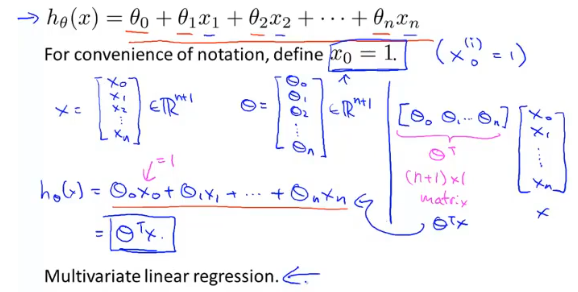 → h_θ(x) = θ_0 + θ_1x_1 + θ_2x_2 + ··· + θ_nx_n
For convenience of notation, define x_0 = 1. (x_0^(i) = 1)
x = [x_0 x_1 x_2 ⋮ x_n] ∈ ℝ^(n+1) θ = [θ_0 θ_1 θ_2 ⋮ θ_n] ∈ ℝ^(n+1)
[θ_0 θ_1 ··· θ_n] [x_0 x_1 ⋮ x_n]
θ^T
(n+1) x 1
matrix
θ^T x x
= 1
h_θ(x) = θ_0x_0 + θ_1x_1 + ··· + θ_nx_n
= θ^T x.
Multivariate linear regression. ←